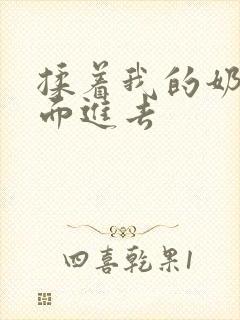 揉着我的奶
而進去
四喜乾果1